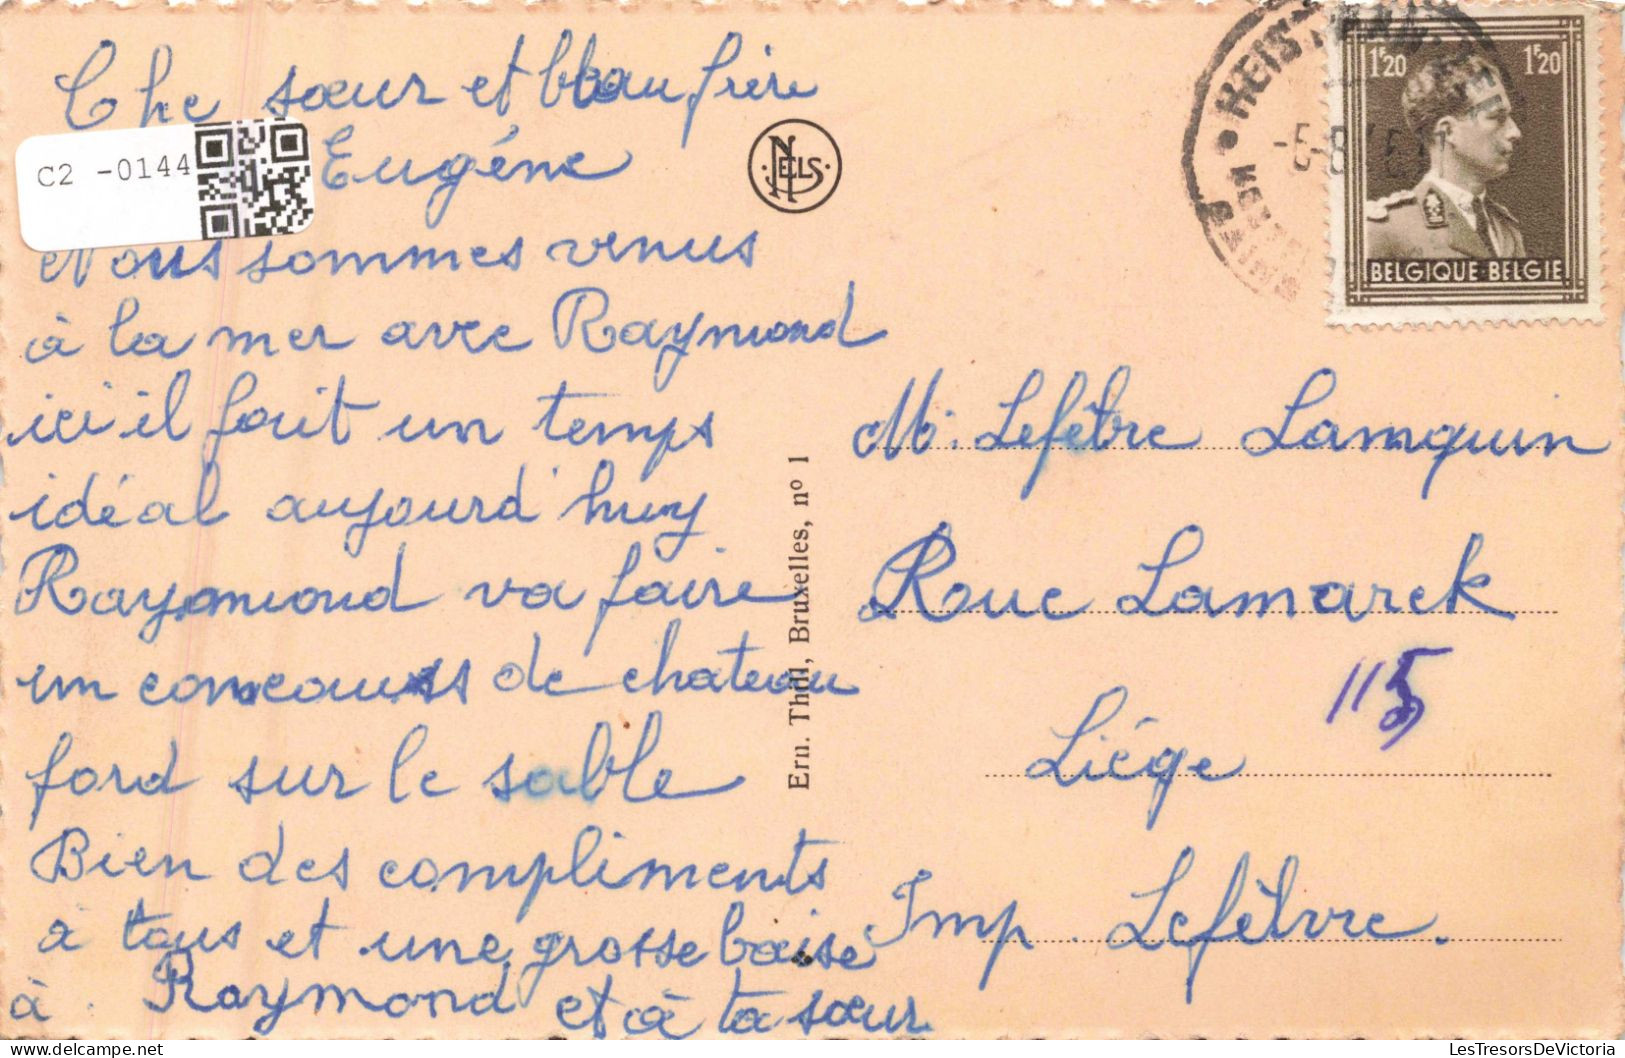 Che sœur et bbau frère
Eugéne
Nous sommes venus
à la mer avec Raymond
ici il fait un temps
idéal aujourd'huy
Raymond va faire
un concours de chateau
ford sur le sable
Bien des compliments
à tous et une grosse baise
à Raymond et à ta sœur
C2 -0144
NELS
Ern. Thill, Bruxelles, nº 1
HEIST
-5-8
1F20 1F20
BELGIQUE·BELGIE
M. Lefêbre Lamquin
Rue Lamarck
115
Liége
Imp. Lefêbvre.
LesTresorsDeVictoria